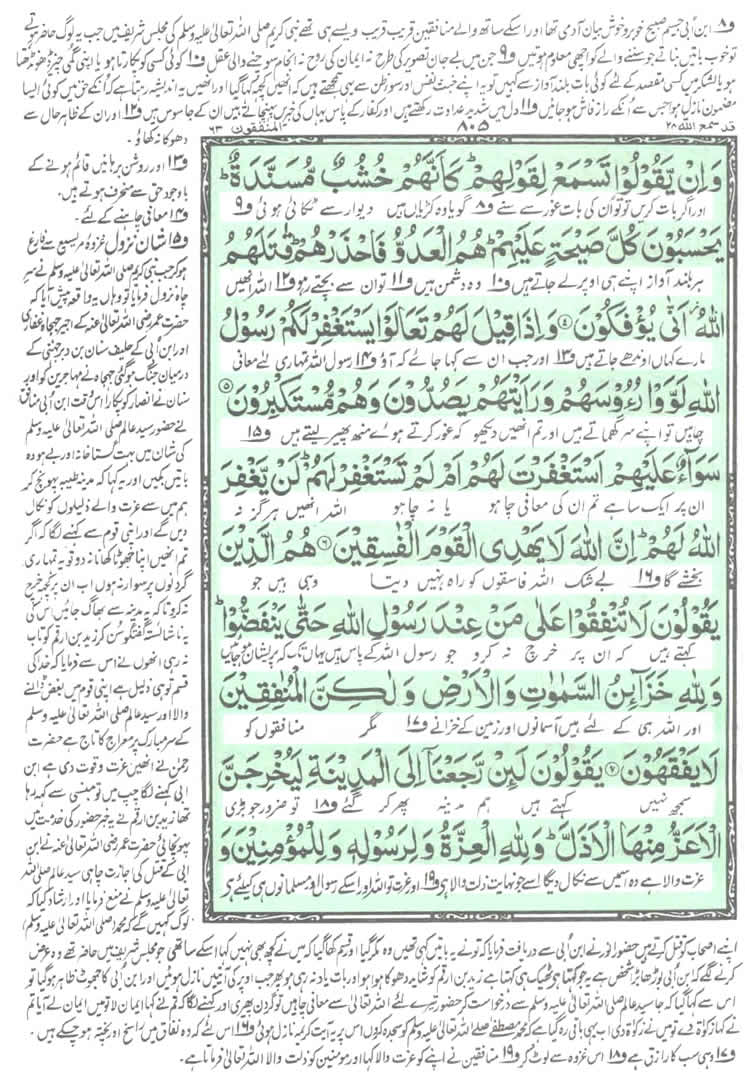 و۸ ابن اُبی جسیم صبیح خوبرو خوش بیان آدمی تھا اور اسکے ساتھ والے منافقین قریب قریب ویسے ہی تھے نبی کریم صلی اللہ تعالیٰ علیہ وسلم کی مجلس شریف میں جب یہ لوگ حاضر ہوتے
تو خوب باتیں بناتے جو سننے والے کو اچھی معلوم ہوتیں و۹ جن میں بے جان تصویر کی طرح نہ ایمان کی روح نہ انجام سوچنے والی عقل و۱۰ کوئی کسی کو پکارتا ہو یا اپنی گمی چیز ڈھونڈھتا
ہو یا لشکر میں کسی مقصد کے لئے کوئی بات بلند آواز سے کہیں تو یہ اپنے خبث نفس اور سوء ظن سے یہی سمجھتے ہیں کہ انھیں کچھ کہا گیا اور انھیں یہ اندیشہ رہتا ہے کہ اُنکے حق میں کوئی ایسا
مضمون نازل ہوا جس سے اُنکے راز فاش ہو جائیں و۱۱ دل میں شدید عداوت رکھتے ہیں اور کفار کے پاس یہاں کی خبریں پہنچاتے ہیں ان کے جاسوس ہیں و۱۲ اور ان کے ظاہر حال سے
دھوکا نہ کھاؤ ۔
قد سمع اللہ ۲۸
۸۰۵
المنٰفقون ۶۳
وَاِنْ يَّقُوْلُوْا تَسْمَعْ لِقَوْلِهِمْ ؕ كَاَنَّهُمْ خُشُبٌ مُّسَنَّدَةٌ ؕ
اور اگر بات کریں تو تُو اُن کی بات غور سے سنے و۸ گویا وہ کڑیاں ہیں دیوار سے ٹکائی ہوئی و۹
يَحْسَبُوْنَ كُلَّ صَيْحَةٍ عَلَيْهِمْ ؕ هُمُ الْعَدُوُّ فَاحْذَرْهُمْ ؕ قٰتَلَهُمُ
ہر بلند آواز اپنے ہی اوپر لے جاتے ہیں و۱۰ وہ دشمن ہیں و۱۱ تو ان سے بچتے رہو و۱۲ اللہ انھیں
اللّٰهُ ؗ اَنّٰى يُؤْفَكُوْنَ ۴ وَاِذَا قِيْلَ لَهُمْ تَعَالَوْا يَسْتَغْفِرْ لَكُمْ رَسُوْلُ
مارے کہاں اوندھے جاتے ہیں و۱۳ اور جب ان سے کہا جائے کہ آؤ و۱۴ رسول اللہ تمہاری لئے معافی
اللّٰهِ لَوَّوْا رُءُوْسَهُمْ وَرَاَيْتَهُمْ يَصُدُّوْنَ وَهُمْ مُّسْتَكْبِرُوْنَ ۵
چاہیں تو اپنے سر گھماتے ہیں اور تم انھیں دیکھو کہ غور کرتے ہوئے منھ پھیر لیتے ہیں و۱۵
سَوَآءٌ عَلَيْهِمْ اَسْتَغْفَرْتَ لَهُمْ اَمْ لَمْ تَسْتَغْفِرْ لَهُمْ ؕ لَنْ يَّغْفِرَ
ان پر ایک سا ہے تم ان کی معافی چاہو یا نہ چاہو اللہ انھیں ہرگز نہ
اللّٰهُ لَهُمْ ؕ اِنَّ اللّٰهَ لَا يَهْدِى الْقَوْمَ الْفٰسِقِيْنَ ۶ هُمُ الَّذِيْنَ
بخشے گا و۱۶ بے شک اللہ فاسقوں کو راہ نہیں دیتا وہی ہیں جو
يَقُوْلُوْنَ لَا تُنْفِقُوْا عَلٰى مَنْ عِنْدَ رَسُوْلِ اللّٰهِ حَتّٰى يَنْفَضُّوْا ؕ
کہتے ہیں کہ ان پر خرچ نہ کرو جو رسول اللہ کے پاس ہیں یہاں تک کہ پریشان ہو جائیں
وَلِلّٰهِ خَزَآئِنُ السَّمٰوٰتِ وَالْاَرْضِ وَلٰـكِنَّ الْمُنٰفِقِيْنَ
اور اللہ ہی کے لئے ہیں آسمانوں اور زمین کے خزانے و۱۷ مگر منافقوں کو
لَا يَفْقَهُوْنَ ۷ يَقُوْلُوْنَ لَئِنْ رَّجَعْنَاۤ اِلَى الْمَدِيْنَةِ لَيُخْرِجَنَّ
سمجھ نہیں کہتے ہیں ہم مدینہ پھر کر گئے و۱۸ تو ضرور جو بڑی
الْاَعَزُّ مِنْهَا الْاَذَلَّ ؕ وَلِلّٰهِ الْعِزَّةُ وَلِرَسُوْلِهٖ وَلِلْمُؤْمِنِيْنَ وَ
عزت والا ہے وہ اسمیں سے نکال دیگا اسے جو نہایت ذلت والا ہے و۱۹ اور عزت تو اللہ اور اسکے رسول اور مسلمانوں ہی کیلئے ہے
و۱۳ اور روشن برہانیں قائم ہونے کے
باوجود حق سے منحرف ہوتے ہیں۔
و۱۴ معافی چاہنے کے لئے ۔
و۱۵ شان نزول غزوہ مریسیع سے فارغ
ہو کر جب نبی کریم صلی اللہ تعالیٰ علیہ وسلم نے سر
چاہ نزول فرمایا تو وہاں یہ واقعہ پیش آیا کہ
حضرت عمر رضی اللہ تعالیٰ عنہ کے اجیر جہجاہ غفاری
اور ابن اُبی کے حلیف سنان بن دبر جہنی کے
درمیان جنگ ہو گئی جہجاہ نے مہاجرین کو اور
سنان نے انصار کو پکارا اس وقت ابن اُبی منافق
نے حضور سید عالم صلی اللہ تعالیٰ علیہ وسلم
کی شان میں بہت گستاخانہ اور بے ہودہ
باتیں بکیں اور یہ کہا کہ مدینہ طیبہ پہونچ کر
ہم میں سے عزت والے ذلیلوں کو نکال
دیں گے اور اپنی قوم سے کہنے لگا کہ اگر
تم انھیں اپنا جھوٹا کھانا نہ دو تو یہ تمہاری
گردنوں پر سوار نہ ہوں اب ان پر کچھ خرچ
نہ کرو تاکہ یہ مدینہ سے بھاگ جائیں اس کی
یہ ناشائستہ گفتگو سن کر زید بن ارقم کو تاب
نہ رہی انھوں نے اس سے فرمایا کہ خدا کی
قسم تو ہی ذلیل ہے اپنی قوم میں بغض ڈالنے
والا اور سید عالم صلی اللہ تعالیٰ علیہ وسلم
کے سر مبارک پر معراج کا تاج ہے حضرت
رحمٰن نے انھیں عزت و قوت دی ہے ابن
ابی کہنے لگا چپ میں تو ہنسی سے کہہ رہا
تھا زید بن ارقم نے یہ خبر حضور کی خدمت میں
پہونچائی حضرت عمر رضی اللہ تعالیٰ عنہ نے ابن
ابی کے قتل کی اجازت چاہی سید عالم صلی اللہ
تعالیٰ علیہ وسلم نے منع فرمایا اور ارشاد کیا کہ
لوگ کہیں گے کہ محمد (صلی اللہ تعالیٰ علیہ وسلم)
اپنے اصحاب کو قتل کرتے ہیں حضور انور نے ابن اُبی سے دریافت فرمایا کہ تو نے یہ باتیں کہی تھیں وہ مکر گیا اور قسم کھا گیا کہ میں نے کچھ بھی نہیں کہا اسکے ساتھی جو مجلس شریف میں حاضر تھے وہ عرض
کرنے لگے کہ ابن اُبی بوڑھا بڑا شخص ہے یہ جو کہتا ہے ٹھیک ہی کہتا ہے زید بن ارقم کو شاید دھوکا ہوا ہو اور بات یاد نہ رہی ہو پھر جب اوپر کی آیتیں نازل ہوئیں اور ابن اُبی کا جھوٹ ظاہر ہو گیا تو
اس سے کہا گیا کہ جا سید عالم صلی اللہ تعالیٰ علیہ وسلم سے درخواست کر حضور تیرے لئے اللہ تعالیٰ سے معافی چاہیں تو گردن پھیری اور کہنے لگا کہ تم نے کہا ایمان لا تو میں ایمان لے آیا تم
نے کہا زکوٰۃ دے تو میں نے زکوٰۃ دی اب یہی باقی رہ گیا ہے کہ محمد مصطفٰے صلی اللہ تعالیٰ علیہ وسلم کو سجدہ کروں اس پر یہ آیت کریمہ نازل ہوئی و۱۶ اس لئے کہ وہ نفاق میں راسخ اور پختہ ہو چکے ہیں ۔
و۱۷ وہی سب کا رازق ہے و۱۸ اس غزوہ سے لوٹ کر و۱۹ منافقین نے اپنے کو عزت والا کہا اور مومنین کو ذلت والا اللہ تعالیٰ فرماتا ہے ۔